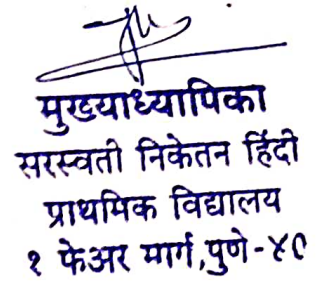 मुख्याध्यापिका
सरस्वती निकेतन हिंदी
प्राथमिक विद्यालय
१ फेअर मार्ग,पुणे-४०